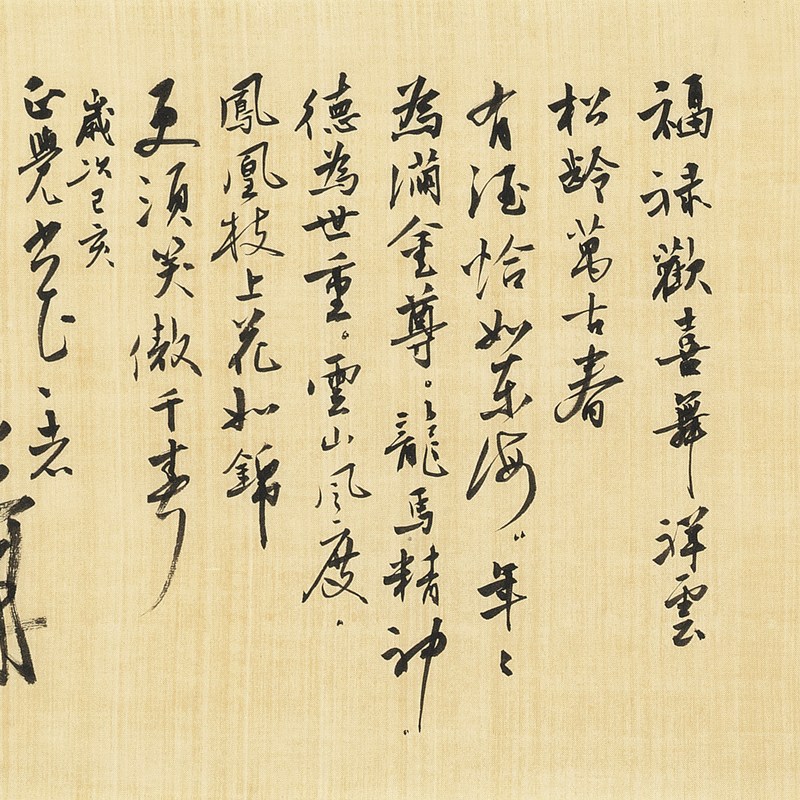 福祿歡喜舞祥雲
松齡萬古春
有酒恰如東海〃年〻
為滿金尊。龍馬精神〃
德為世重。雲山風度、
鳳凰枝上花如錦
更須笑傲千壽
歲次己亥
正覺